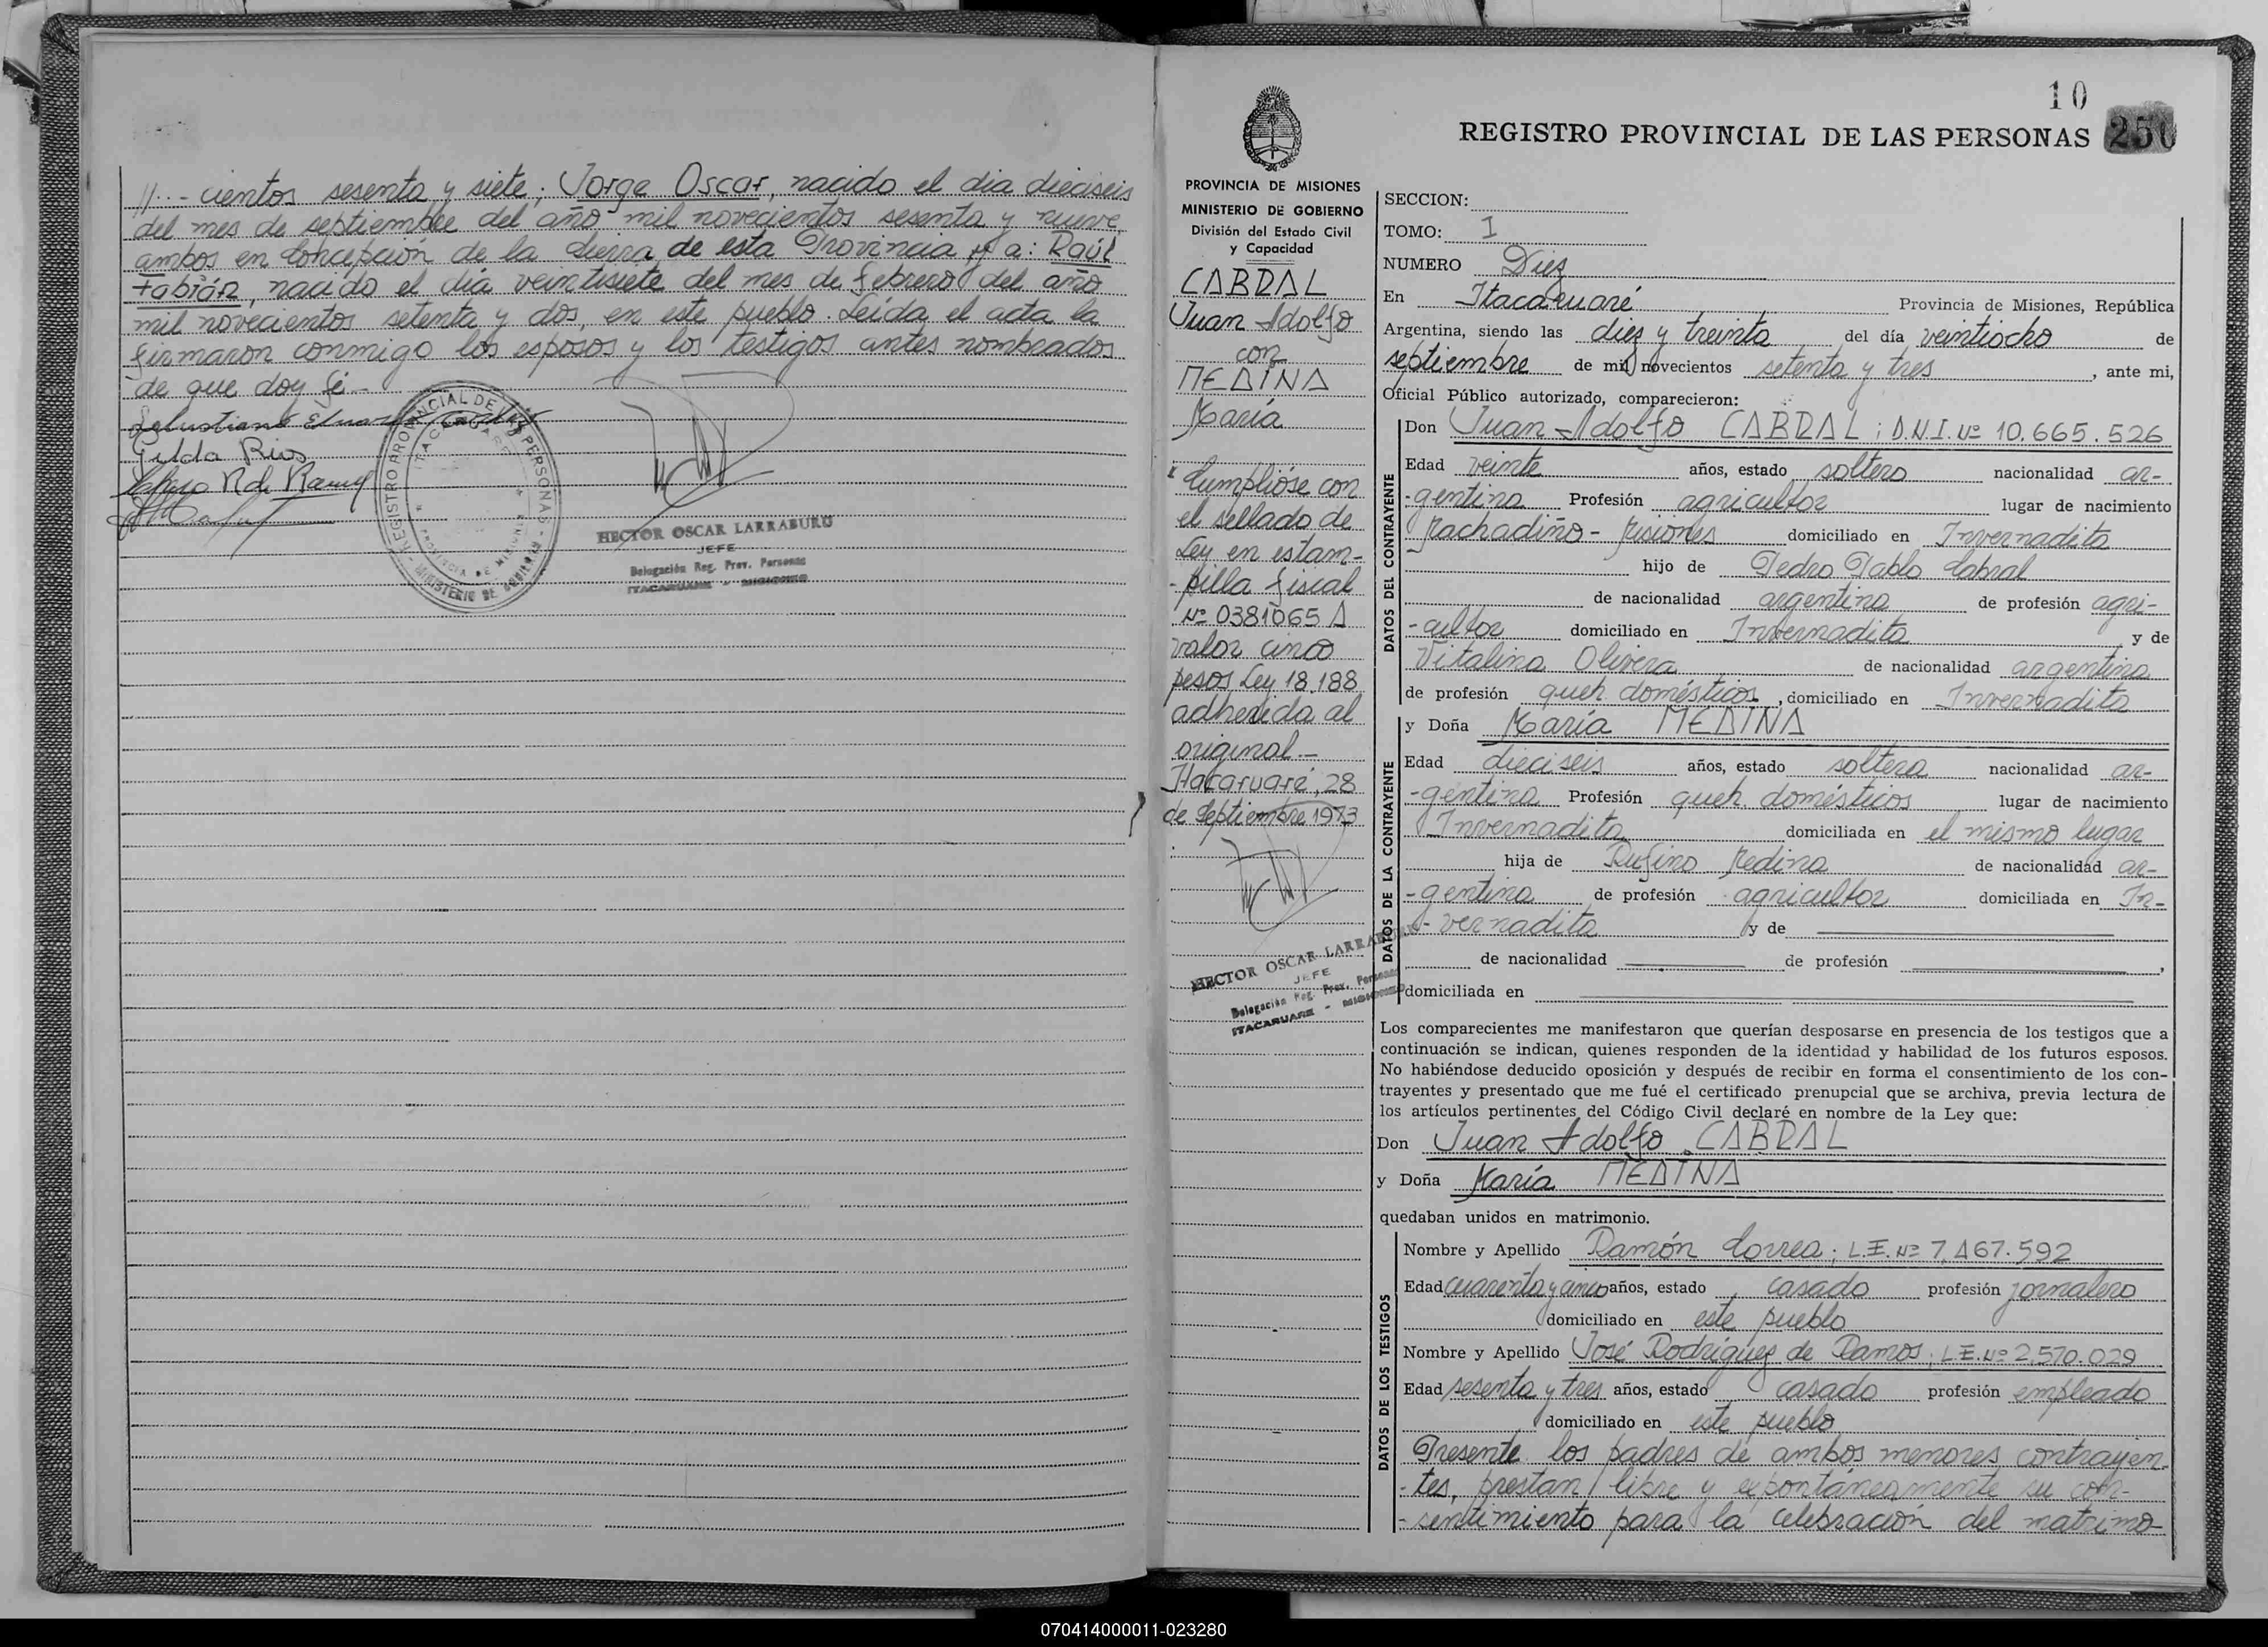 //... cientos sesenta y siete; Jorge Oscar, nacido el dia dieciseis
del mes de septiembre del año mil novecientos sesenta y nueve,
ambos en Concepción de la Sierra, de esta Provincia y a: Raúl
Fabián, nacido el día veintisiete del mes de febrero del año
mil novecientos setenta y dos, en este pueblo. Leída el acta la
firmaron conmigo los esposos y los testigos antes nombrados
de que doy fé.-
Gilda Rios
REGISTRO PROVINCIAL DE LAS PERSONAS
ITACARUARE
PROVINCIA DE MISIONES
MINISTERIO DE GOBIERNO
HECTOR OSCAR LARRABURU
JEFE
Delegación Reg. Prov. Personas
ITACARUARE - MISIONES
PROVINCIA DE MISIONES
MINISTERIO DE GOBIERNO
División del Estado Civil
y Capacidad
CABRAL
Juan Adolfo
con
MEDINA
María
"Cumplióse con
el sellado de
Ley en estam-
-pilla fiscal
Nº 0381065 A
valor cinco
pesos Ley 18.188
adherida al
original.-
Itacaruaré, 28
de Septiembre 1973
HECTOR OSCAR LARRABURU
JEFE
Delegación Reg. Prov. Personas
ITACARUARE - MISIONES
10
REGISTRO PROVINCIAL DE LAS PERSONAS 250
SECCION:
TOMO: I
NUMERO Diez
En Itacaruaré Provincia de Misiones, República
Argentina, siendo las diez y treinta del día veintiocho de
septiembre de mil novecientos setenta y tres, ante mi,
Oficial Público autorizado, comparecieron:
DATOS DEL CONTRAYENTE
Don Juan Adolfo CABRAL; D.N.I. Nº 10.665.526
Edad veinte años, estado soltero nacionalidad ar-
-gentina Profesión agricultor lugar de nacimiento
Machadiño - Misiones domiciliado en Invernadita
hijo de Pedro Pablo Cabral
de nacionalidad argentina de profesión agri-
-cultor domiciliado en Invernadita y de
Vitalina Olivera de nacionalidad argentina
de profesión queh. domésticos, domiciliado en Invernadita
DATOS DE LA CONTRAYENTE
y Doña María MEDINA
Edad dieciseis años, estado soltera nacionalidad ar-
-gentina Profesión queh. domésticos lugar de nacimiento
Invernadita domiciliada en el mismo lugar
hija de Rufino Medina de nacionalidad ar-
-gentina de profesión agricultor domiciliada en In-
-vernadita y de
de nacionalidad de profesión ,
domiciliada en
Los comparecientes me manifestaron que querían desposarse en presencia de los testigos que a
continuación se indican, quienes responden de la identidad y habilidad de los futuros esposos.
No habiéndose deducido oposición y después de recibir en forma el consentimiento de los con-
trayentes y presentado que me fué el certificado prenupcial que se archiva, previa lectura de
los artículos pertinentes del Código Civil declaré en nombre de la Ley que:
Don Juan Adolfo CABRAL
y Doña María MEDINA
quedaban unidos en matrimonio.
DATOS DE LOS TESTIGOS
Nombre y Apellido Ramón Correa; L.E. Nº 7.467.592
Edad cuarenta y cinco años, estado casado profesión jornalero
domiciliado en este pueblo
Nombre y Apellido José Rodríguez de Ramos; L.E. Nº 2.570.029
Edad sesenta y tres años, estado casado profesión empleado
domiciliado en este pueblo
Presente los padres de ambos menores contrayen-
-tes, prestan libre y expontáneamente su con-
-sentimiento para la celebración del matrimo-
070414000011-023280